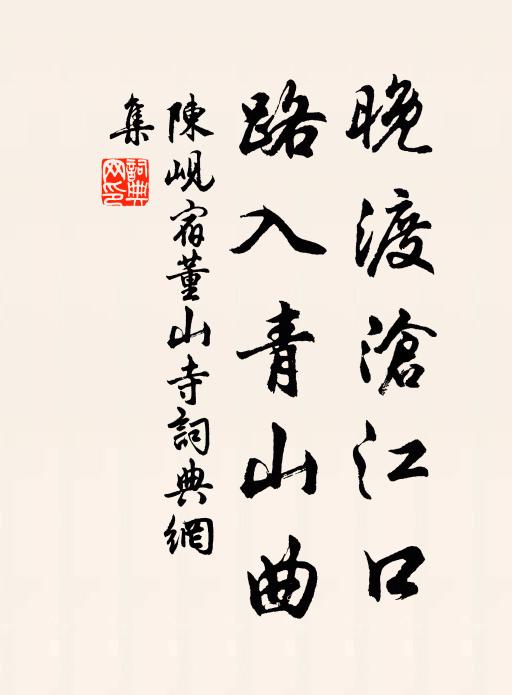 晚渡滄江口
路入青山曲
陳峴宿董山寺詞典網
集
詞典
网印